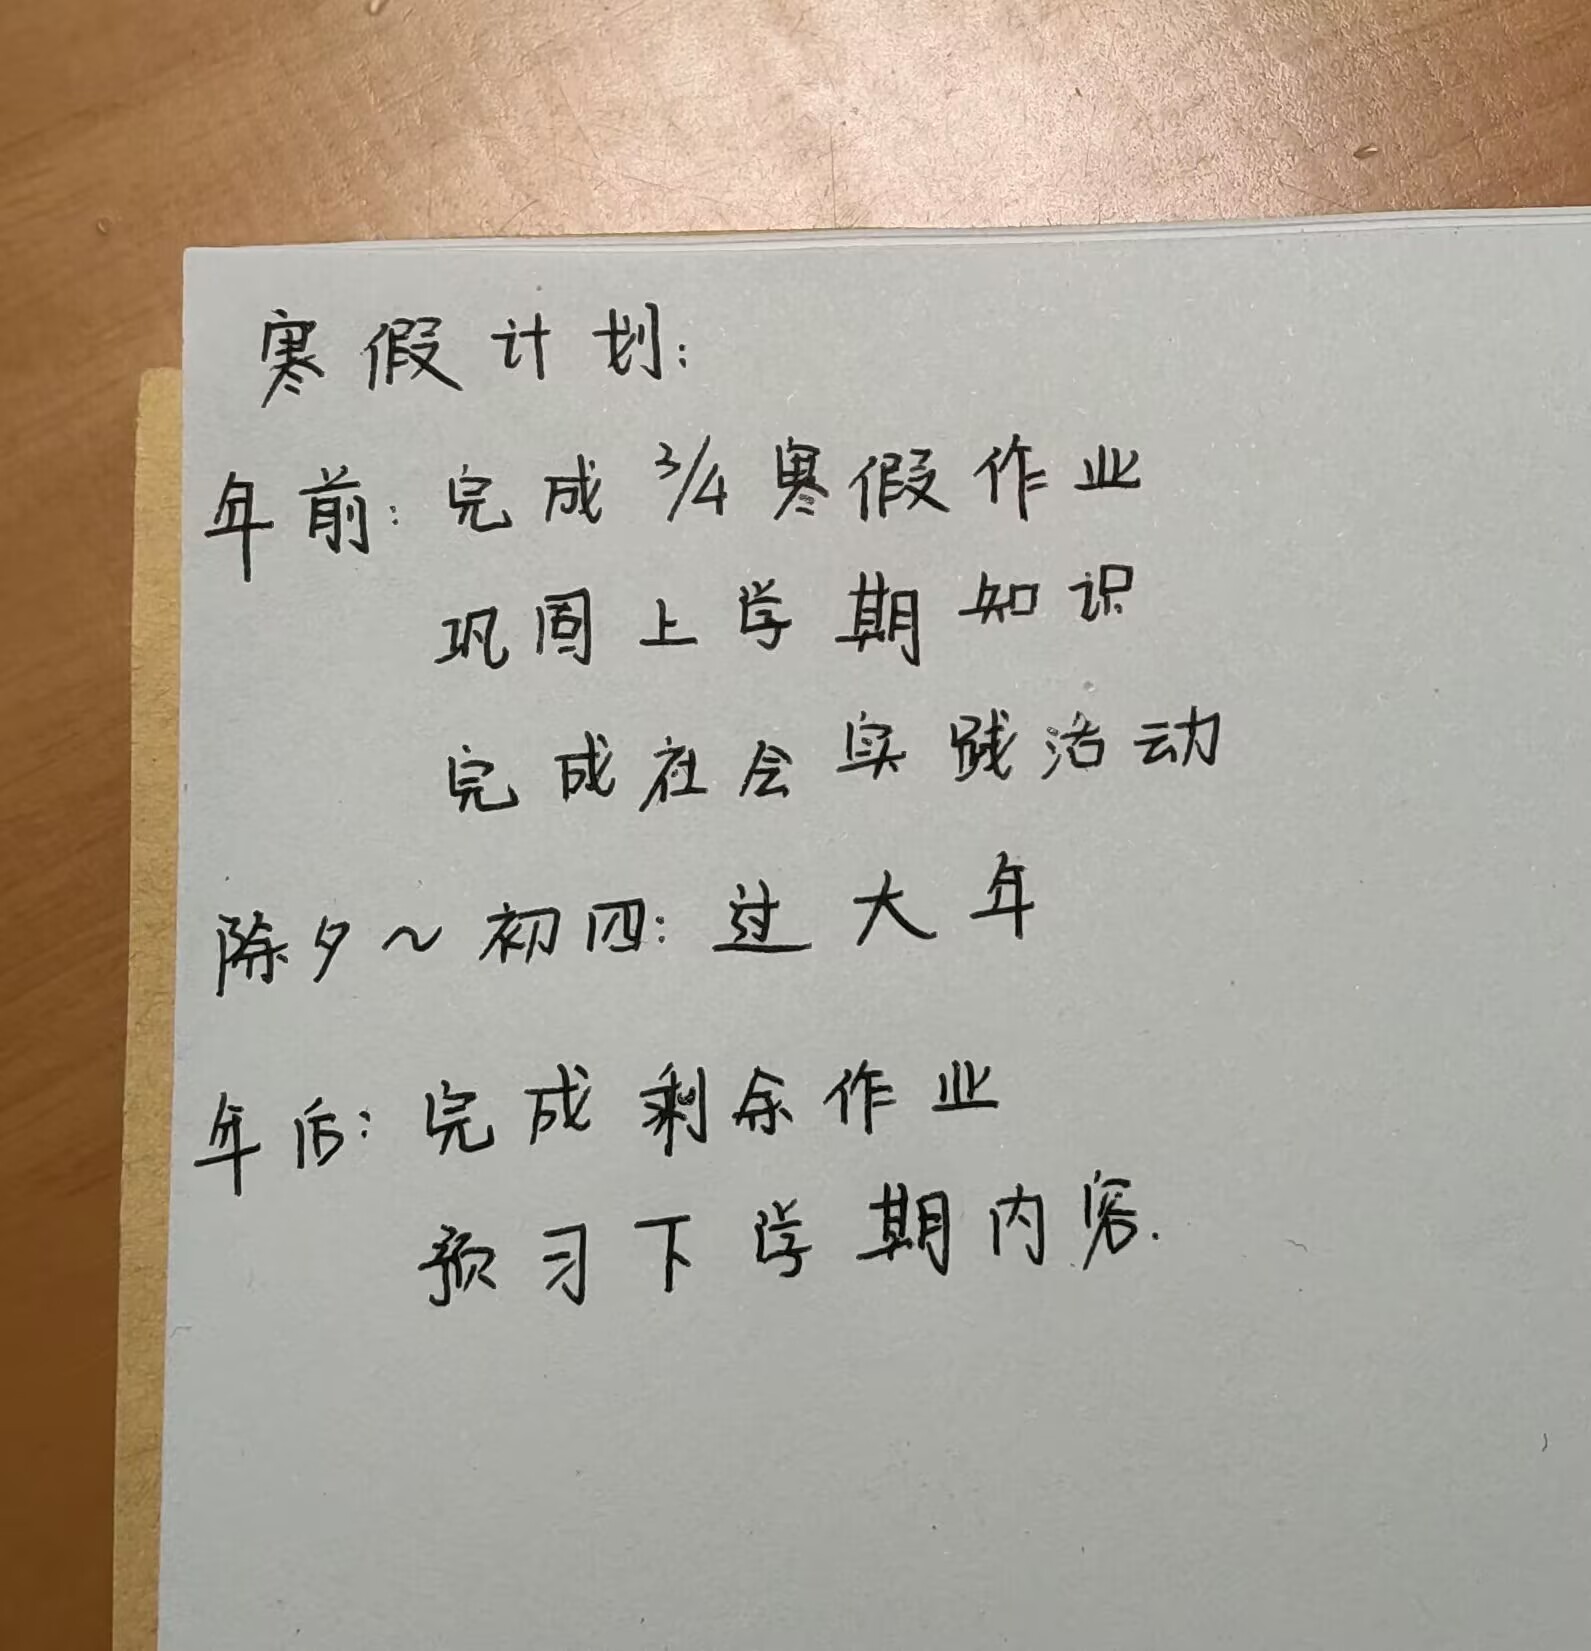 寒假计划:
年前: 完成3/4寒假作业
巩固上学期知识
完成社会实践活动
除夕~初四: 过大年
年后: 完成剩余作业
预习下学期内容.